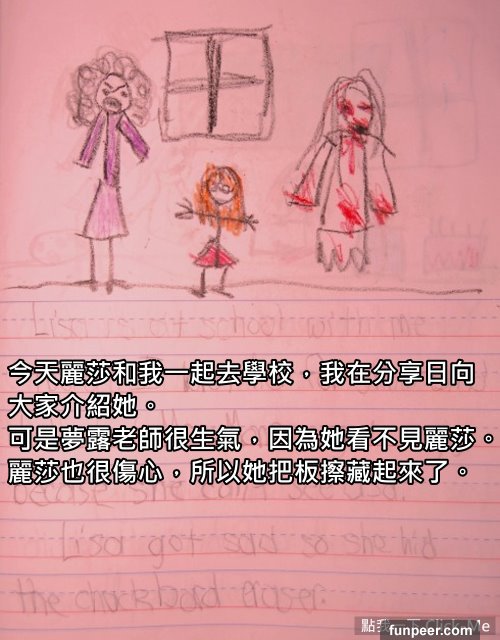 Lisa is at school with me
今天麗莎和我一起去學校，我在分享日向
大家介紹她。
可是夢露老師很生氣，因為她看不見麗莎。
麗莎也很傷心，所以她把板擦藏起來了。
Lisa got sad so she hid
the chuckboard eraser.
點我一下 Click Me
funpeer.com